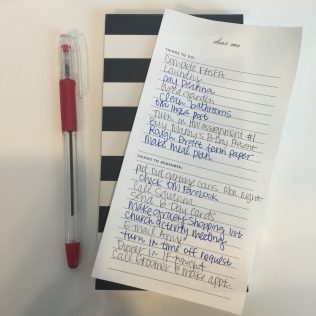 dear me
THINGS TO DO:
Complete FASFA
Laundry
pay Deanna
Weed garden
clean bathrooms
Turn in the assignment #1
Buy Mammy's B-Day Present
Rough Draft term paper
make meal plan
THINGS TO REMEMBER:
put out garbage cans Mon night
check on Facebook
Call Savanna
send B-Day cards
make grocery shopping list
church activity meeting
E-mail
turn in time off request
Dinner in IF tonight
Call Groomer & make appt.